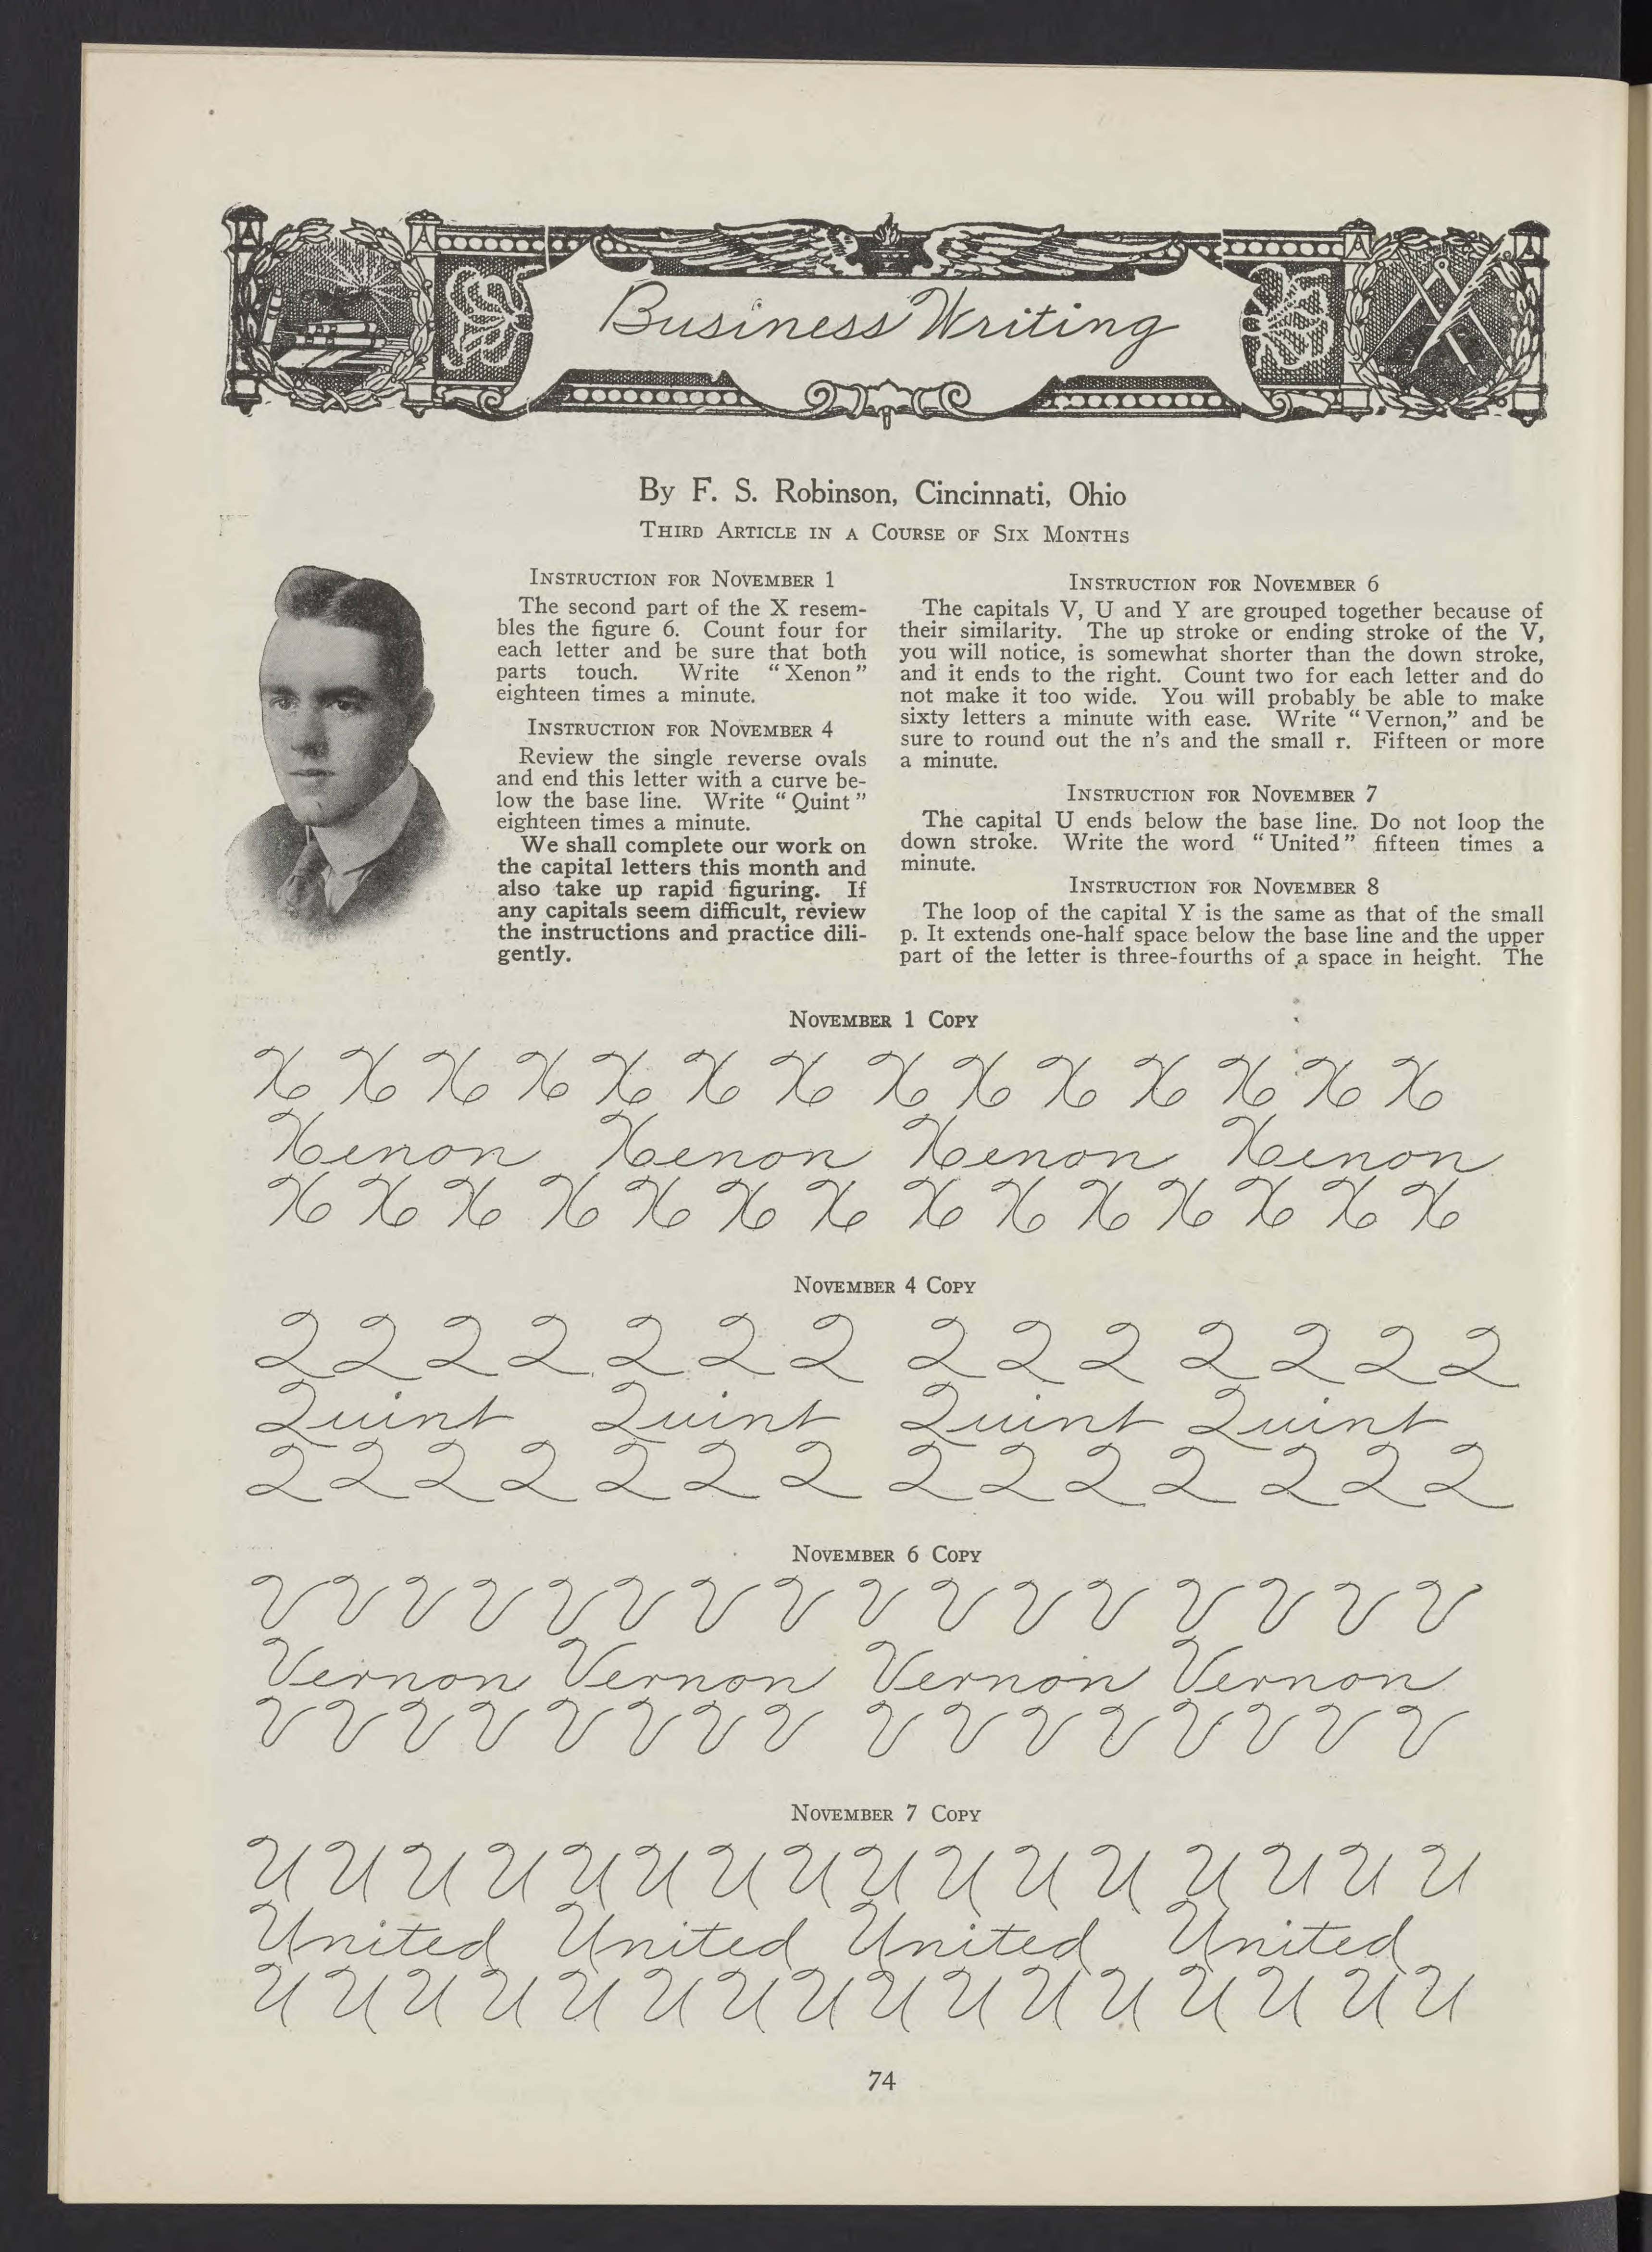 Business Writing
By F. S. Robinson, Cincinnati, Ohio
Third Article in a Course of Six Months
Instruction for November 1
The second part of the X resem-
bles the figure 6. Count four for
each letter and be sure that both
parts touch. Write "Xenon"
eighteen times a minute.
Instruction for November 4
Review the single reverse ovals
and end this letter with a curve be-
low the base line. Write "Quint"
eighteen times a minute.
We shall complete our work on
the capital letters this month and
also take up rapid figuring. If
any capitals seem difficult, review
the instructions and practice dili-
gently.
Instruction for November 6
The capitals V, U and Y are grouped together because of
their similarity. The up stroke or ending stroke of the V,
you will notice, is somewhat shorter than the down stroke,
and it ends to the right. Count two for each letter and do
not make it too wide. You will probably be able to make
sixty letters a minute with ease. Write "Vernon," and be
sure to round out the n's and the small r. Fifteen or more
a minute.
Instruction for November 7
The capital U ends below the base line. Do not loop the
down stroke. Write the word "United" fifteen times a
minute.
Instruction for November 8
The loop of the capital Y is the same as that of the small
p. It extends one-half space below the base line and the upper
part of the letter is three-fourths of a space in height. The
November 1 Copy
X X X X X X X X X X X X X X
Xenon Xenon Xenon Xenon
X X X X X X X X X X X X X X
November 4 Copy
Q Q Q Q Q Q Q Q Q Q Q Q Q Q
Quint Quint Quint Quint
Q Q Q Q Q Q Q Q Q Q Q Q Q Q
November 6 Copy
V V V V V V V V V V V V V V V V
Vernon Vernon Vernon Vernon
V V V V V V V V V V V V V V V V
November 7 Copy
U U U U U U U U U U U U U U U U
United United United United
U U U U U U U U U U U U U U U U
74